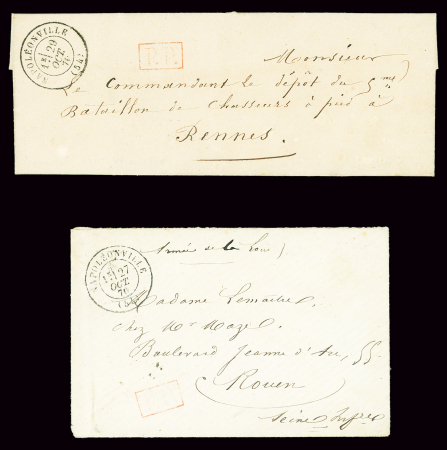 NAPOLÉONVILLE
29
OCT.
70
(54)
P.P.
Monsieur
Le Commandant le dépôt du 5me
Bataillon de Chasseurs à pied à
Rennes.
NAPOLÉONVILLE
27
OCT.
70
(54)
Armée de la Loire
Madame Lemaitre
chez Mr Mazel
Boulevard Jeanne d'Arc, 55.
Rouen
Seine Infre